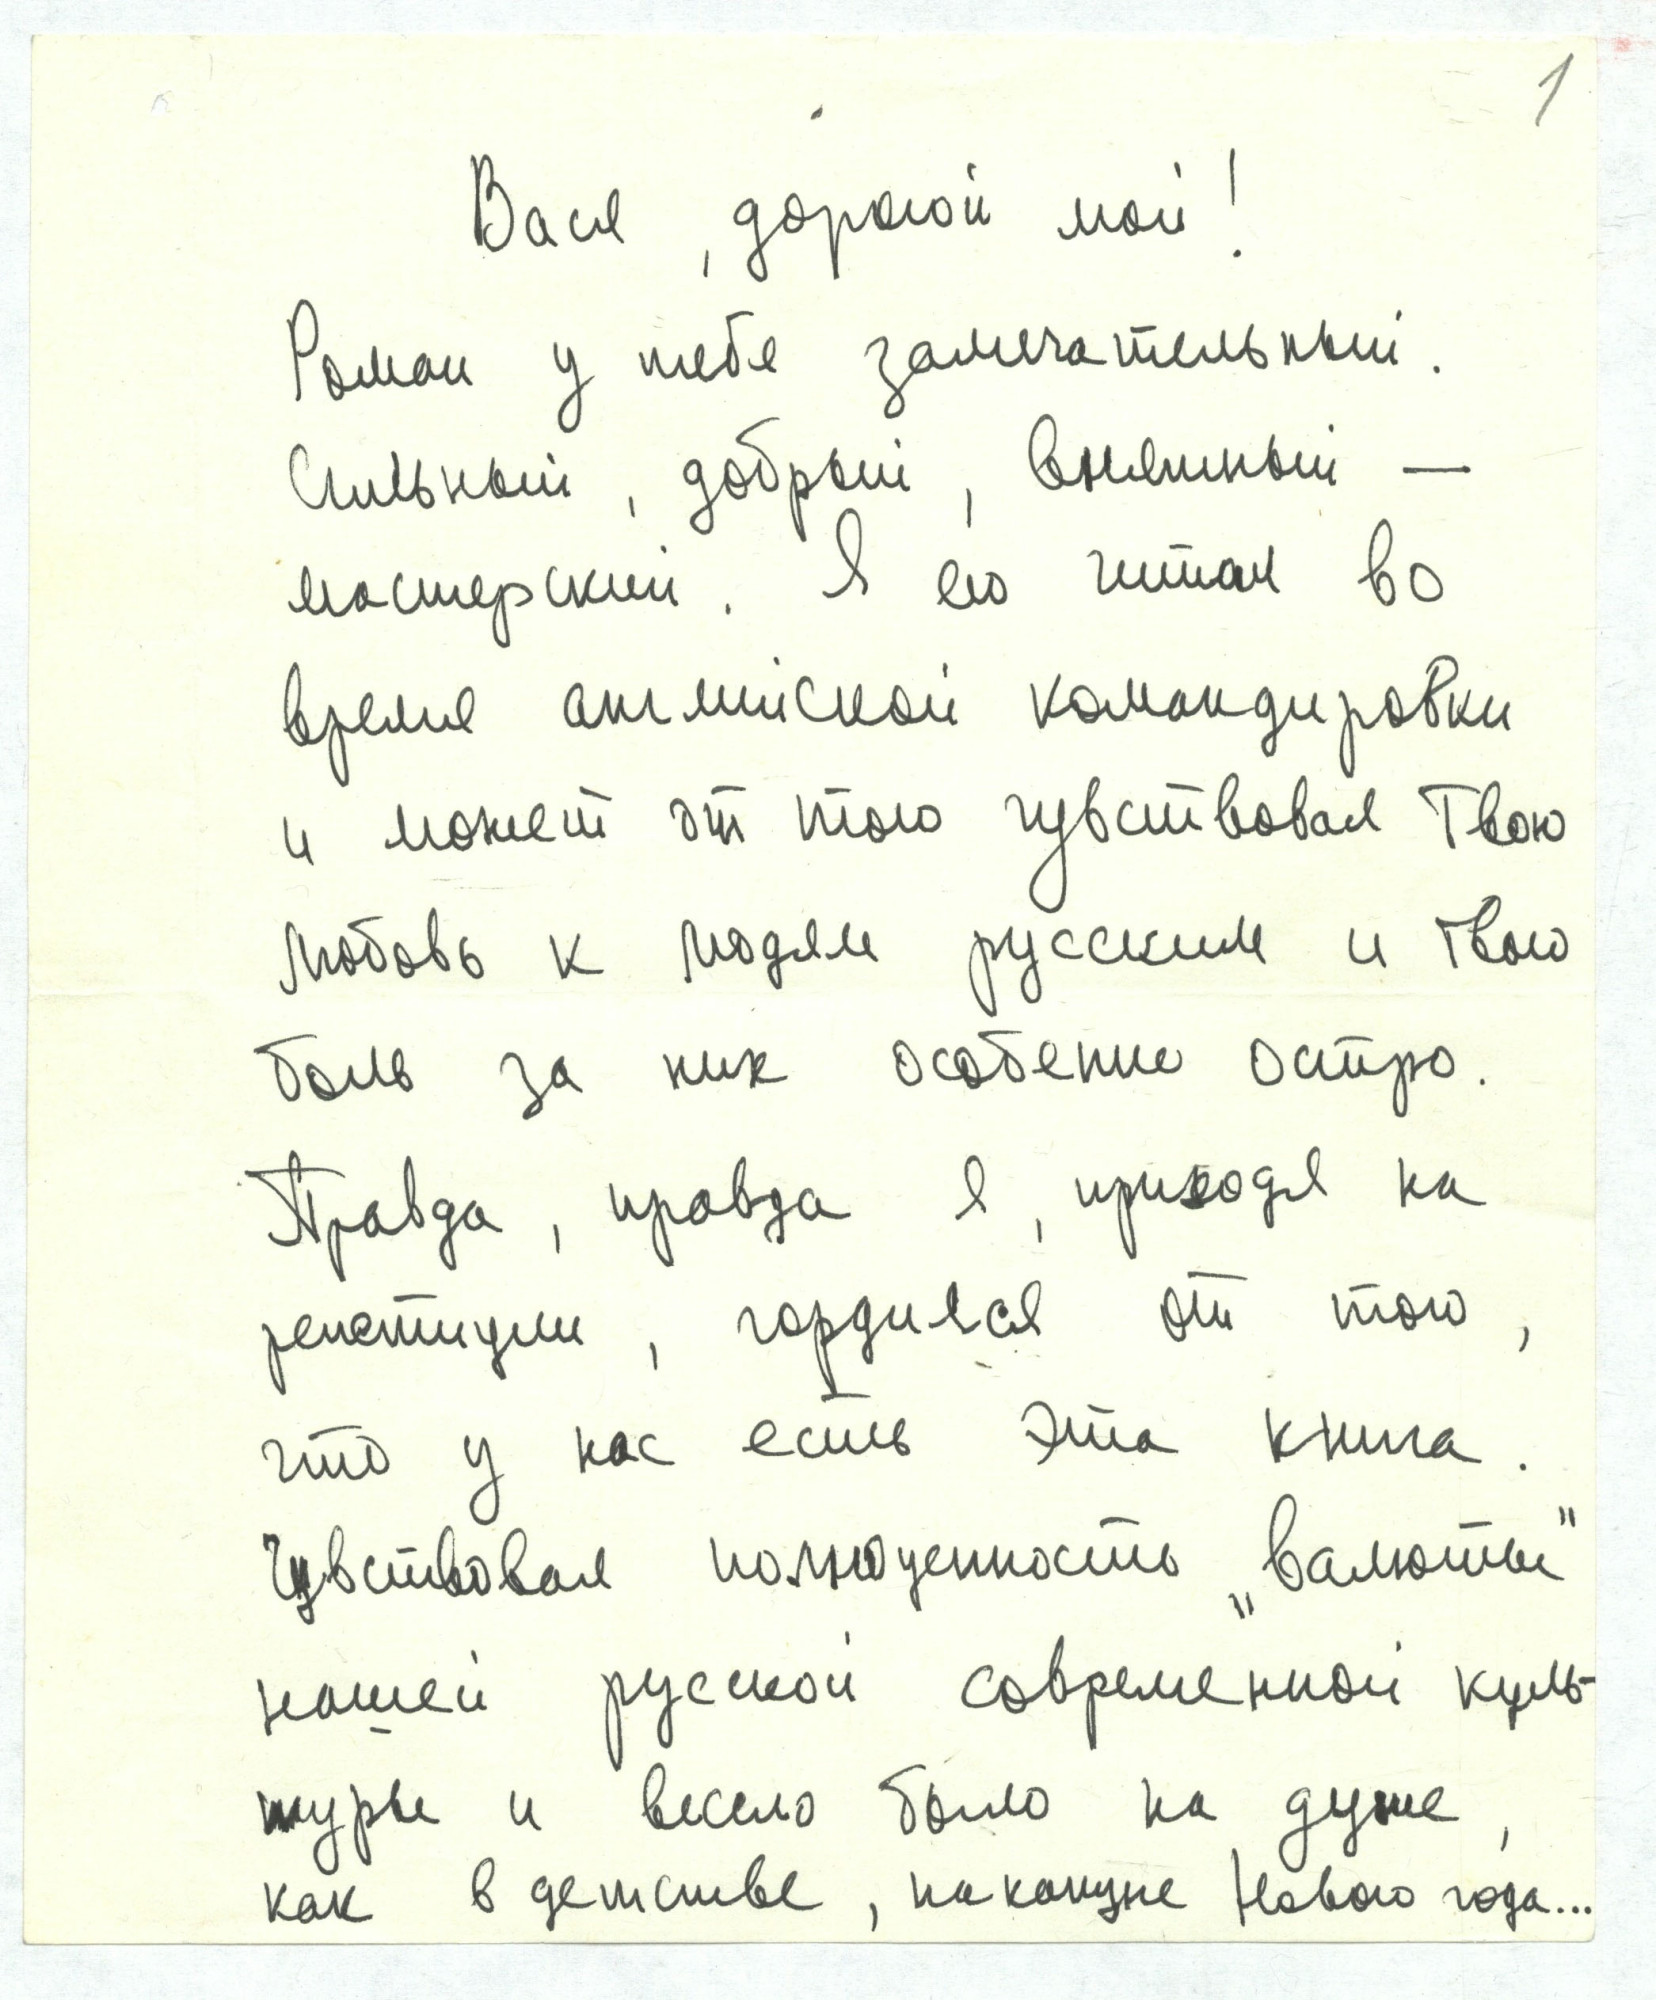 1
Вася, дорогой мой!
Роман у тебя замечательный.
Сильный, добрый, внятный —
мастерский. Я его читал во
время английской командировки
и может от того чувствовал Твою
любовь к людям русским и твою
боль за них особенно остро.
Правда, правда я, приходя на
репетиции, гордился от того,
что у нас есть эта книга.
Чувствовал полноценность „валюты"
нашей русской современной куль-
туры и весело было на душе,
как в детстве, накануне Нового года...